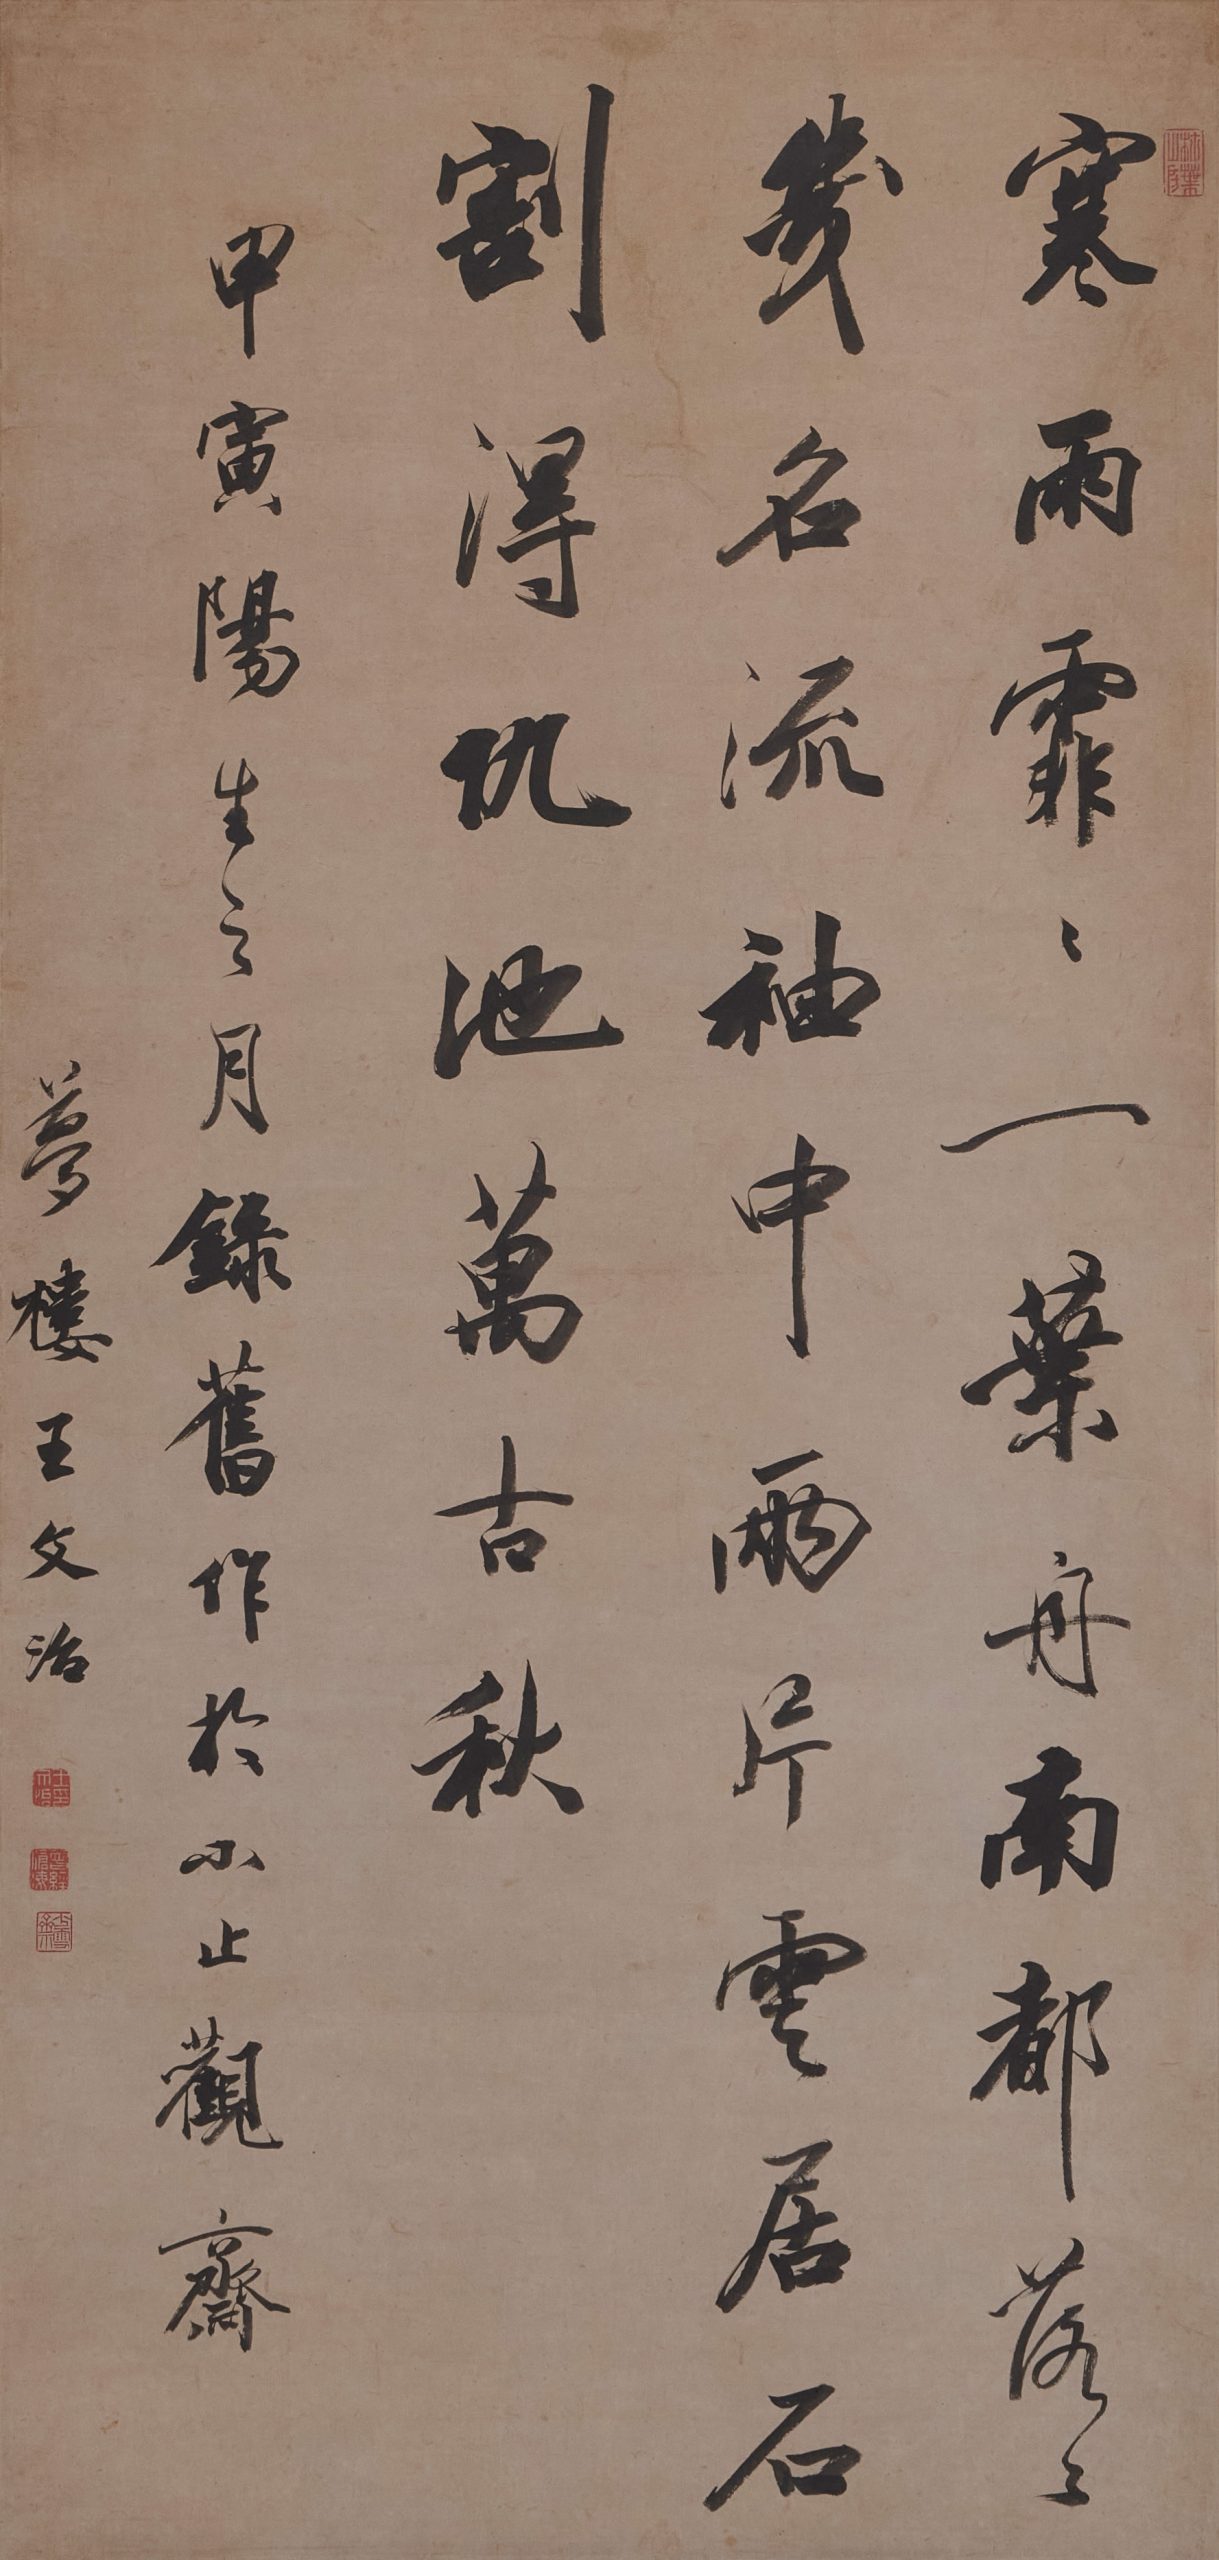 寒雨霏〻一葉舟南都落〻
幾名流袖中兩片雲居石
割得仇池萬古秋
甲寅陽生之月錄舊作於小止觀齋
夢樓王文治